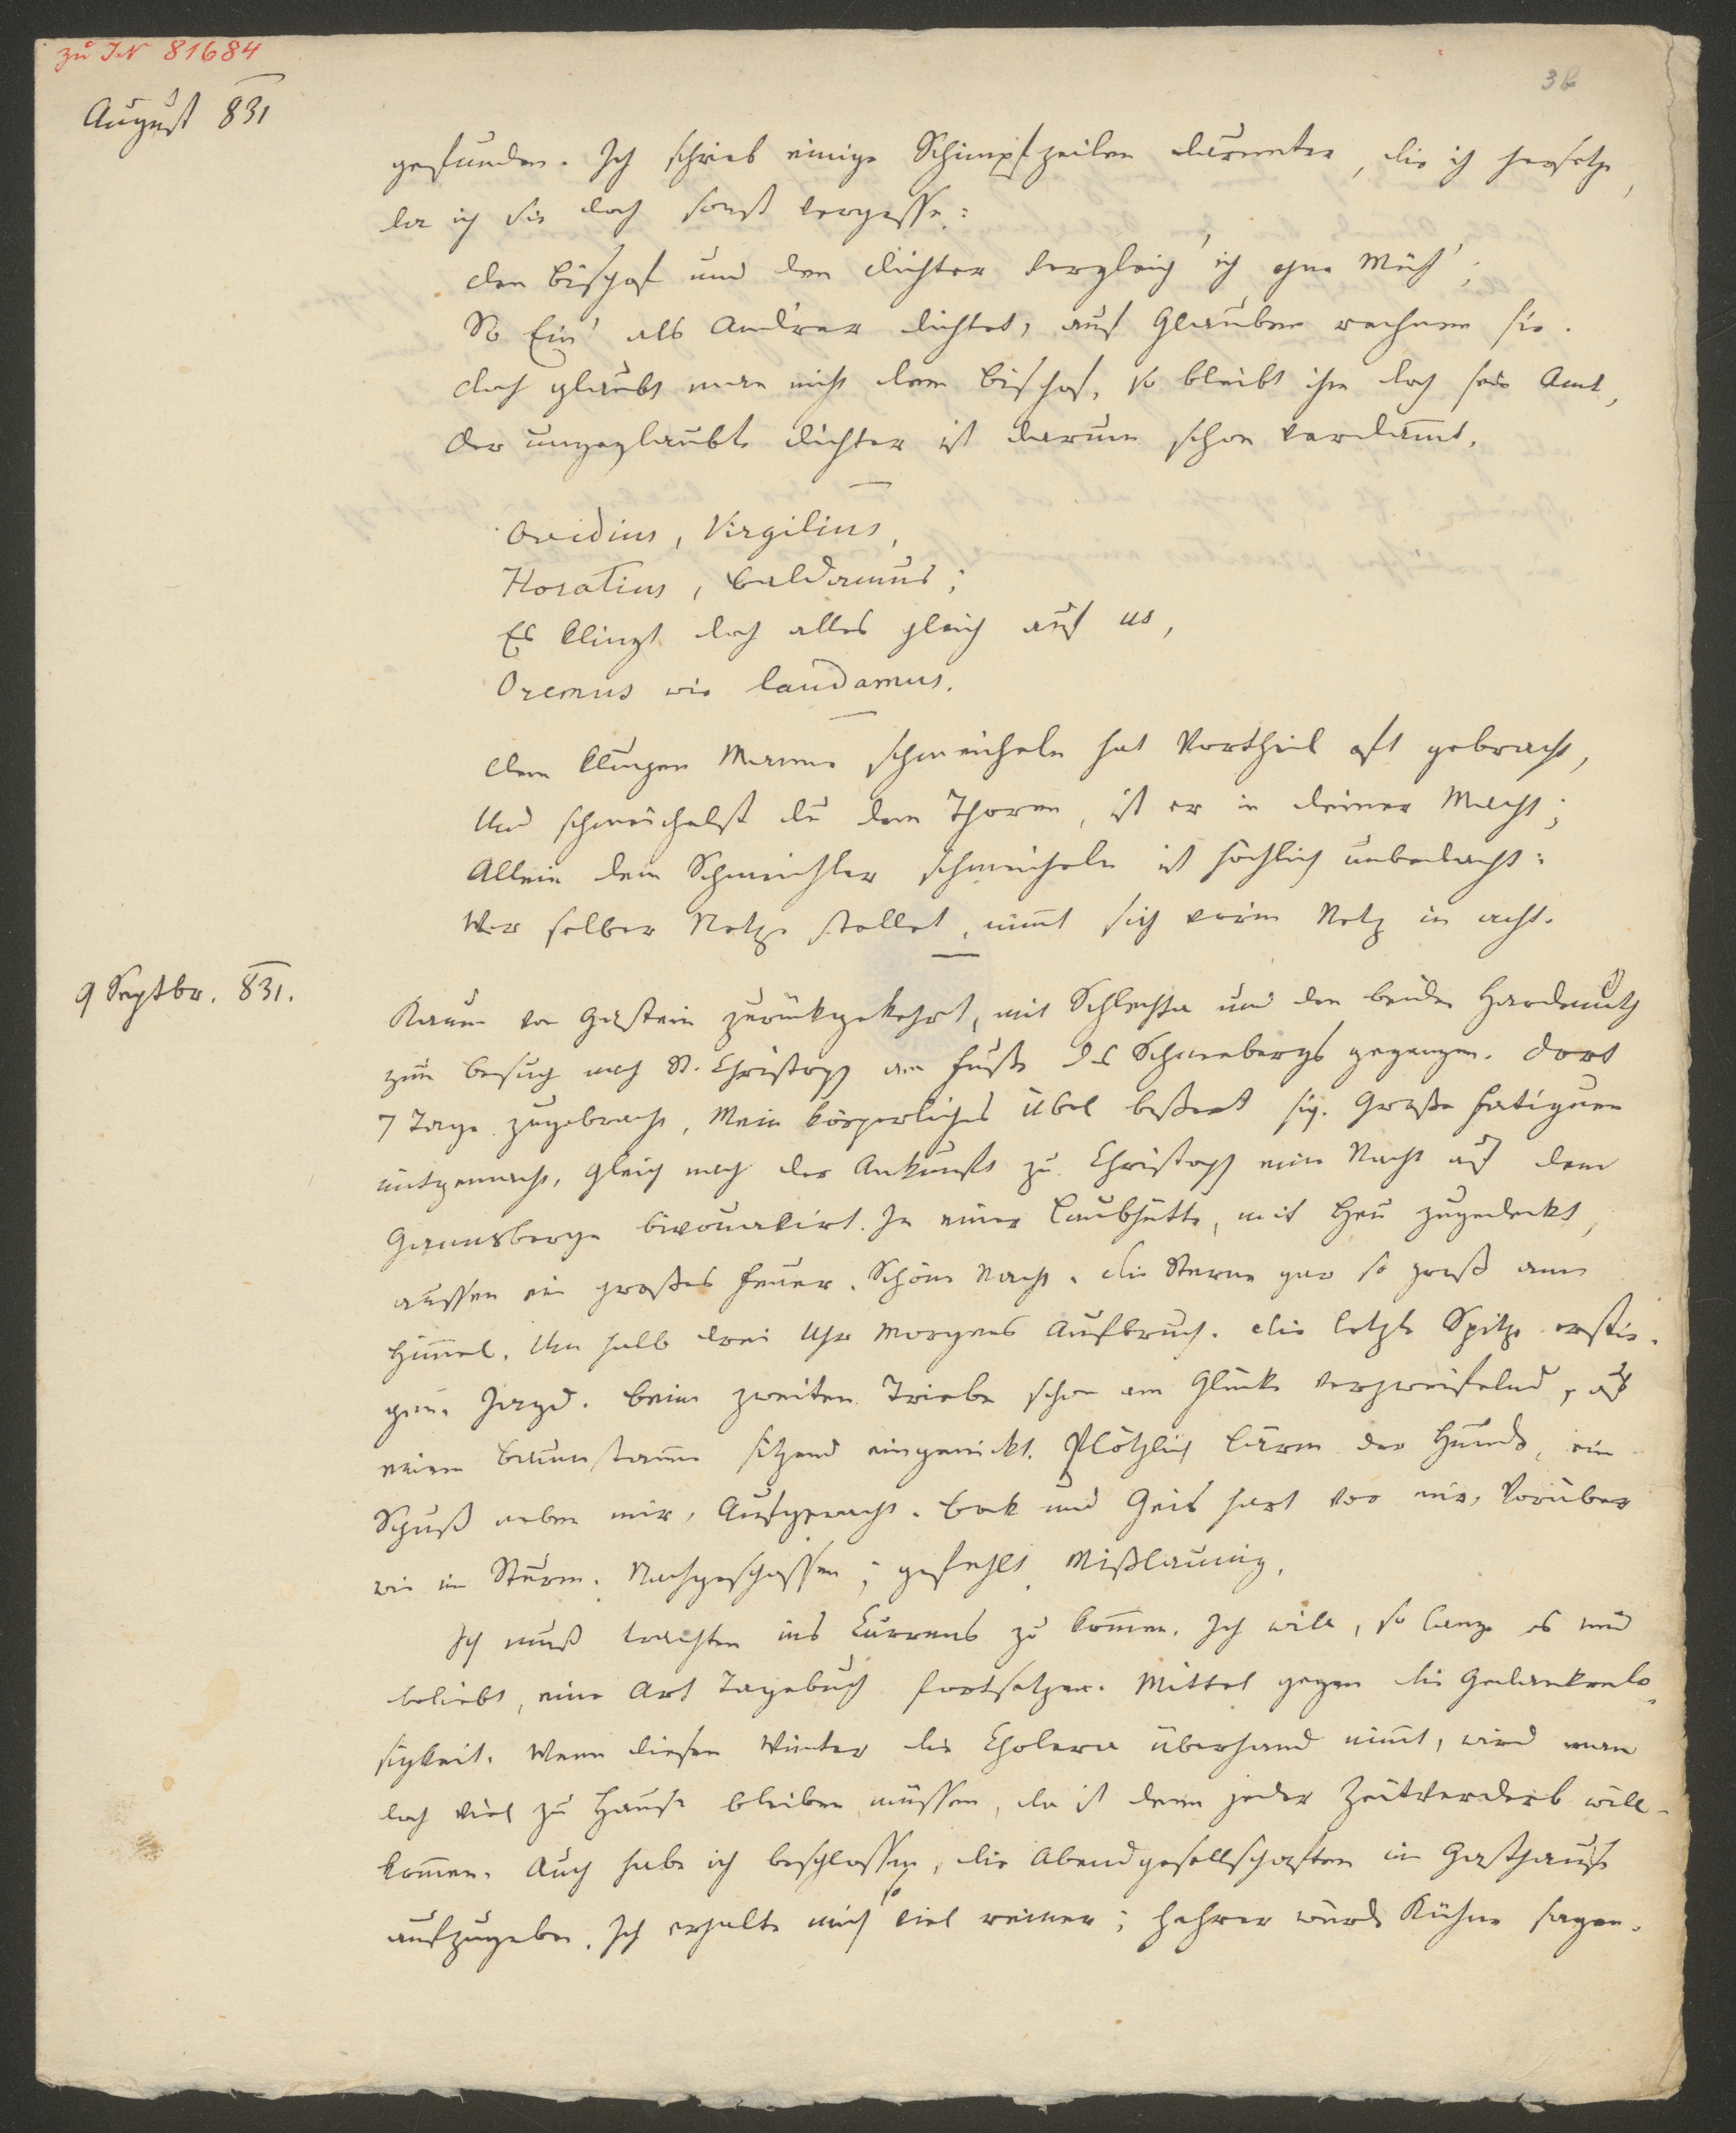 zu IN 81684
36
August 831
gefunden. Ich schrieb einige Schimpfzeilen darunter, die ich hersetze,
da ich sie doch sonst vergesse:
Den Bischof und den Dichter vergleich' ich ohne Müh';
So Ein' als Andrer dichtet, auf Glauben rechnen sie.
Doch glaubt man nicht dem Bischof, so bleibt ihm doch sein Amt,
Der ungeglaubte Dichter ist darum schon verdamt.
Ovidius, Virgilius,
Horatius, Baldamus;
Es klingt doch alles gleich auf us,
Oremus wie laudamus.
Dem klugen Manne schmeicheln hat Vortheil oft gebracht,
Und schmeichelst du dem Thoren, ist er in deiner Macht;
Allein dem Schmeichler schmeicheln ist höchlich unbedacht:
Wer selber Netze stellet, nimt sich vorm Netz in acht.
9 Septbr. 831.
Kaum von Gastein zurückgekehrt, mit Schlechta und den beiden Hardtmuth
zum Besuch nach St. Christoph am Fuße des Schneebergs gegangen. Dort
7 Tage zugebracht. Mein körperliches Übel bessert sich. Große Fatiguen
mitgemacht. Gleich nach der Ankunft zu Christoph eine Nacht auf dem
Gannsberge bivouakirt. In einer Laubhütte, mit Heu zugedeckt,
aussen ein großes Feuer. Schöne Nacht. Die Sterne gar so groß am
Himel. Um halb drei Uhr Morgens Aufbruch. Die letzte Spitze erstie-
gen. Jagd. Beim zweiten Triebe schon am Glücke verzweifelnd, auf
einem Baumstamme sitzend eingenickt. Plötzlich Lärm der Hunde, ein
Schuß neben mir, Aufgewacht. Bock und Geis hart vor mir, Vorüber
wie im Sturm. Nachgeschossen; gefehlt. Mißlaunig.
Ich muß trachten ins Currens zu komen. Ich will, so lang es mir
beliebt, eine Art Tagebuch fortsetzen. Mittel gegen die Gedankenlo-
sigkeit. Wenn diesen Winter die Cholera überhand nimt, wird man
doch viel zu Hause bleiben müssen, da ist denn jeder Zeitverderb will-
komen. Auch habe ich beschlossen, die Abendgesellschaften im Gasthause
aufzugeben. Ich erhalte mich so viel reiner; hehrer würde Kühne sagen.